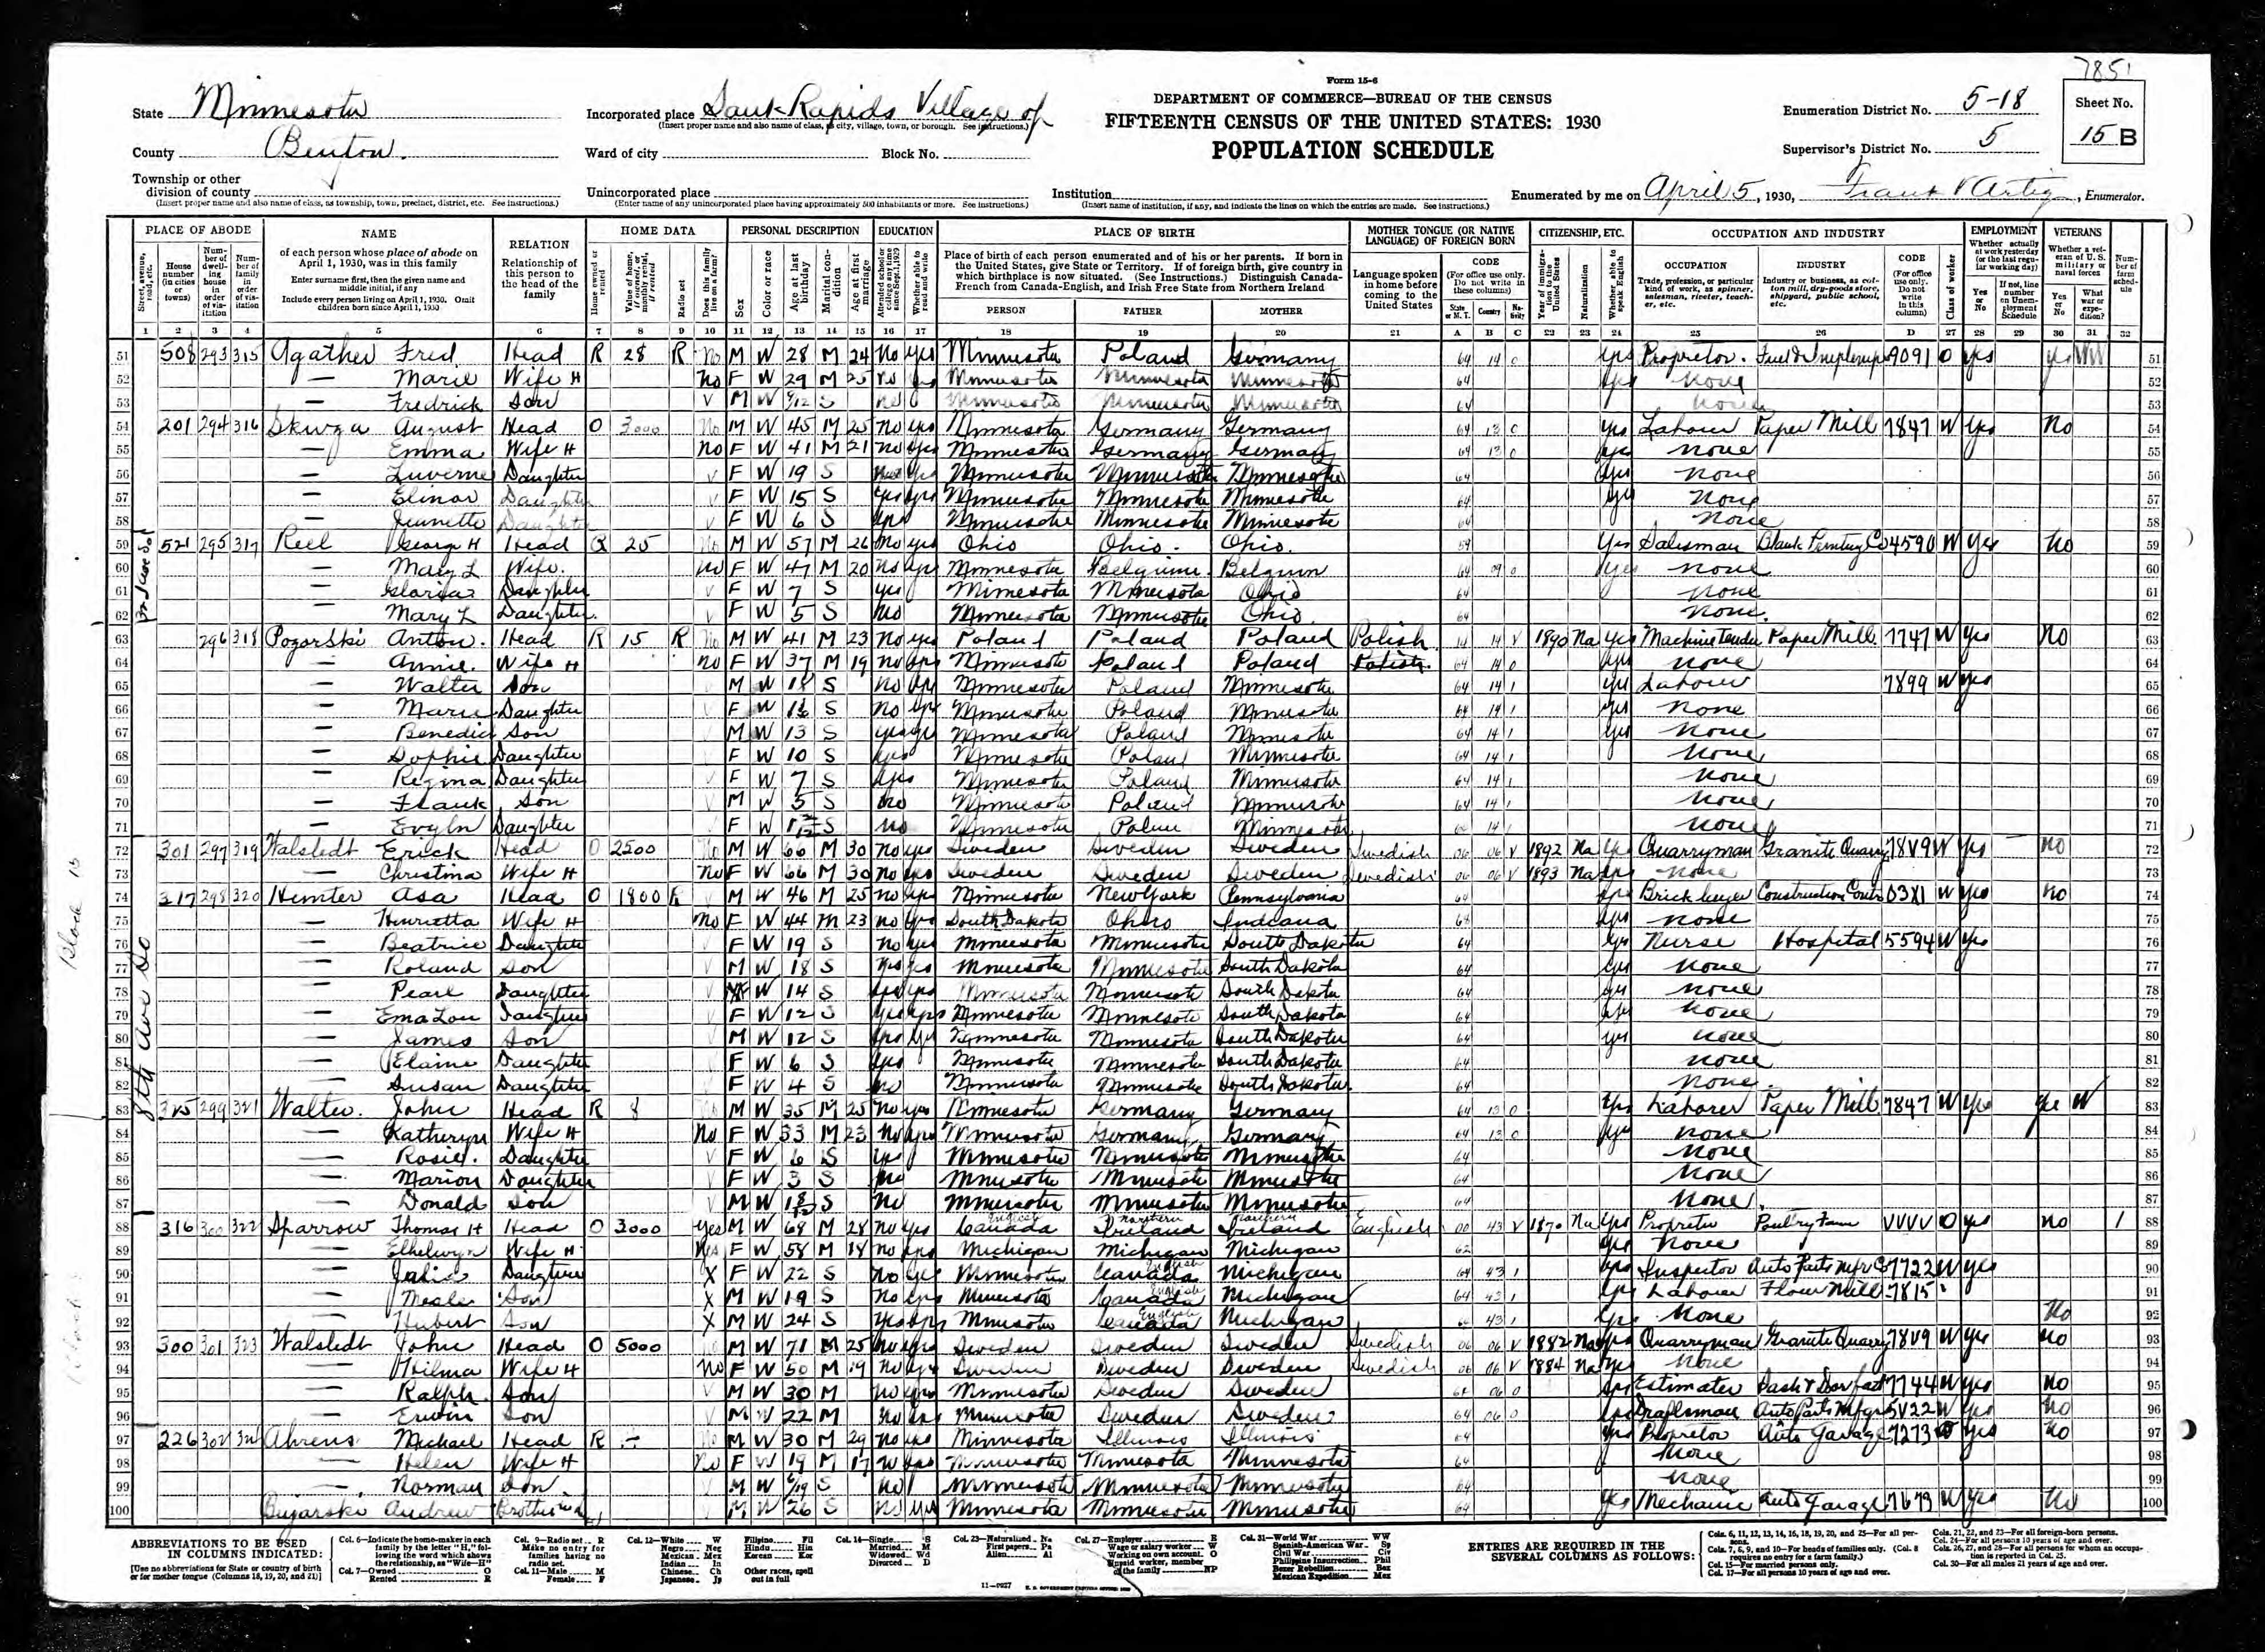 7851
Form 15-6
State Minnesota
Incorporated place Sauk Rapids Village of
(Insert proper name and also name of class, as city, village, town, or borough. See instructions.)
DEPARTMENT OF COMMERCE—BUREAU OF THE CENSUS
FIFTEENTH CENSUS OF THE UNITED STATES: 1930
POPULATION SCHEDULE
Enumeration District No. 5-18
Sheet No.
15 B
County Benton.
Ward of city
Block No.
Supervisor's District No. 5
Township or other division of county
(Insert proper name and also name of class, as township, town, precinct, district, etc. See instructions.)
Unincorporated place
(Enter name of any unincorporated place having approximately 500 inhabitants or more. See instructions.)
Institution
(Insert name of institution, if any, and indicate the lines on which the entries are made. See instructions.)
Enumerated by me on April 5, 1930, Frank V Artig, Enumerator.
PLACE OF ABODE NAME RELATION HOME DATA PERSONAL DESCRIPTION EDUCATION PLACE OF BIRTH MOTHER TONGUE (OR NATIVE LANGUAGE) OF FOREIGN BORN CITIZENSHIP, ETC. OCCUPATION AND INDUSTRY EMPLOYMENT VETERANS
1 2 3 4 5 6 7 8 9 10 11 12 13 14 15 16 17 18 19 20 21 A B C 22 23 24 25 26 D 27 28 29 30 31 32
51 508 293 315 Agather Fred Head R 28 R No M W 28 M 24 No Yes Minnesota Poland Germany 64 14 0 Yes Proprietor. 9091 O Yes yes WW 51
52 — Marie Wife H No F W 29 M 25 No Yes Minnesota Minnesota Minnesota 64 Yes None 52
53 — Fredrick Son V M W S No Minnesota Minnesota Minnesota 64 None 53
54 201 294 316 Skwza August Head O 3000 No M W 45 M 25 No Yes Minnesota Germany Germany 64 13 0 Yes Laborer Paper Mill 7847 W Yes No 54
55 — Emma Wife H No F W 41 M 21 No Yes Minnesota Germany Germany 64 13 0 Yes None 55
56 — Luverne Daughter V F W 19 S Yes Minnesota Minnesota Minnesota 64 Yes None 56
57 — Elinor Daughter V F W 15 S Yes Yes Minnesota Minnesota Minnesota 64 Yes None 57
58 — Jeunette Daughter V F W 6 S Yes Minnesota Minnesota Minnesota 64 None 58
59 521 295 317 Reel George H Head R 25 No M W 57 M 26 No Yes Ohio Ohio. Ohio. 59 Yes Salesman 4590 W Yes No 59
60 — Mary L Wife. No F W 47 M 20 No Yes Minnesota Belgium. Belgium 64 09 0 Yes None 60
61 — Gloria Daughter V F W 7 S Yes Minnesota Minnesota Ohio 64 None 61
62 — Mary L Daughter. V F W 5 S No Minnesota Minnesota Ohio. 64 None. 62
63 296 318 Pogorski Anton. Head R 15 R No M W 41 M 23 No Yes Poland Poland Poland Polish 14 14 V 1890 Na Yes Machine Tender Paper Mill. 7747 W Yes No 63
64 — Annie. Wife H No F W 37 M 19 No Yes Minnesota Poland Poland Polish 64 14 0 Yes None 64
65 — Walter Son V M W 18 S No Yes Minnesota Poland Minnesota 64 14 1 Yes Laborer 7899 W Yes 65
66 — Marie Daughter V F W 16 S No Yes Minnesota Poland Minnesota 64 14 1 Yes None 66
67 — Benedic Son V M W 13 S Yes Yes Minnesota Poland Minnesota 64 14 1 Yes None 67
68 — Sophie Daughter V F W 10 S Yes Minnesota Poland Minnesota 64 14 1 None 68
69 — Regina Daughter V F W 7 S Yes Minnesota Poland Minnesota 64 14 1 None 69
70 — Frank Son V M W 5 S No Minnesota Poland Minnesota 64 14 1 None 70
71 — Evyln Daughter F W S No Minnesota Polan Minnesota 14 1 None 71
72 301 297 319 Walstedt Erick Head O 2500 No M W 66 M 30 No Yes Sweden Sweden Sweden Swedish 06 06 V 1892 Na Yes Quarryman Granite Quarry 78V9 W Yes No 72
73 — Christina Wife H No F W 66 M 30 No Yes Sweden Sweden Sweden Swedish 06 06 V 1893 Na Yes None 73
74 317 298 320 Hemter Asa Head O 1800 R V M W 46 M 25 No Yes Minnesota New York Pennsylvania 64 Yes Brick layer Construction Contr 03X1 W Yes No 74
75 — Henrietta Wife H No F W 44 M 23 No Yes South Dakota Ohio Indiana 68 Yes None 75
76 — Beatrice Daughter F W 19 S No Yes Minnesota Minnesota South Dakota 64 Yes Nurse Hospital 5594 W Yes 76
77 — Roland Son V M W 18 S Yes Yes Minnesota Minnesota South Dakota 64 Yes None 77
78 — Pearl Daughter V F W 14 S Yes Yes Minnesota Minnesota South Dakota 64 Yes None 78
79 — Ema Lou Daughter V F W 12 S Yes Yes Minnesota Minnesota South Dakota 64 Yes None 79
80 — James Son V M W 12 S Yes Yes Minnesota Minnesota South Dakota 64 Yes None 80
81 — Elaine Daughter V F W 6 S Yes Minnesota Minnesota South Dakota 64 None 81
82 — Susan Daughter V F W 4 S No Minnesota Minnesota South Dakota 64 None. 82
83 325 299 321 Walter. John Head R 8 No M W 35 M 25 No Yes Minnesota Germany Germany 64 13 0 Yes Laborer Paper Mill 7847 W Yes Yes W 83
84 — Katheryn Wife H No F W 33 M 23 No Yes Minnesota Germany Germany 64 13 0 Yes None 84
85 — Rosie. Daughter V F W 6 S Yes Minnesota Minnesota Minnesota 64 None 85
86 — Marion Daughter V F W 3 S No Minnesota Minnesota Minnesota 64 None 86
87 — Donald Son V M W S No Minnesota Minnesota Minnesota 64 None 87
88 316 300 322 Sparrow Thomas H Head O 3000 Yes M W 68 M 28 No Yes Canada English Ireland Northern Ireland Northern English 00 43 V 1870 Na Yes Proprietor Poultry Farm VVVV O Yes No 1 88
89 — Ethelwyn Wife H Yes F W 58 M 18 No Yes Michigan Michigan Michigan 62 Yes None 89
90 — Julia Daughter X F W 22 S No Yes Minnesota Canada English Michigan 64 43 1 Yes Inspector Auto Parts Mfr Co 7722 W Yes 90
91 — Merle Son X M W 19 S No Yes Minnesota Canada English Michigan 64 43 1 Yes Laborer Flour Mill 7815 91
92 — Hubert Son X M W 24 S Yes Yes Minnesota Canada English Michigan 43 1 Yes None No 92
93 300 301 323 Walstedt John Head O 5000 M W 71 M 25 No Yes Sweden Sweden Sweden Swedish 06 06 V 1882 Na Yes Quarryman Granite Quarry 78V9 W Yes No 93
94 — Hilma Wife H No F W 50 M 19 No Yes Sweden Sweden Sweden Swedish 06 06 V 1884 Na Yes None 94
95 — Ralph. Son V M W 30 M No Yes Minnesota Sweden Sweden 64 06 0 Yes Estimater Sash & Dor fact 7744 W Yes No 95
96 — Erwin Son V M W 22 M No Yes Minnesota Sweden Sweden 64 06 0 Yes Draftsman Auto Parts Mfgr 5V22 W Yes No 96
97 226 302 324 Ahrens Michael Head R — No M W 30 M 29 No Yes Minnesota Illinois Illinois 64 Yes Proprietor Auto Garage 7273 O Yes No 97
98 — Helen Wife H No F W 19 M 17 No Yes Minnesota Minnesota Minnesota 64 None 98
99 — Norman Son V M W S No Minnesota Minnesota Minnesota 64 None 99
100 Bujarski Andrew Brother in law V M W 26 S No Yes Minnesota Minnesota Minnesota 64 Yes Mechanic Auto Garage 7673 W Yes No 100
2nd Ave So
8th Ave So
Block 15
ABBREVIATIONS TO BE USED IN COLUMNS INDICATED:
[Use no abbreviations for State or country of birth or for mother tongue (Columns 18, 19, 20, and 21)]
Col. 6—Indicate the home-maker in each family by the letter "H," following the word which shows the relationship, as "Wife—H"
Col. 7—Owned O
Rented R
Col. 9—Radio set R
Make no entry for families having no radio set.
Col. 11—Male M
Female F
Col. 12—White W
Negro Neg
Mexican Mex
Indian In
Chinese Ch
Japanese Jp
Filipino Fil
Hindu Hin
Korean Kor
Other races, spell out in full
Col. 14—Single S
Married M
Widowed Wd
Divorced D
Col. 23—Naturalized Na
First papers Pa
Alien Al
Col. 27—Employer E
Wage or salary worker W
Working on own account O
Unpaid worker, member of the family NP
Col. 31—World War WW
Spanish-American War Sp
Civil War Civ
Philippine Insurrection Phil
Boxer Rebellion Box
Mexican Expedition Mex
ENTRIES ARE REQUIRED IN THE SEVERAL COLUMNS AS FOLLOWS:
Cols. 6, 11, 12, 13, 14, 16, 18, 19, 20, and 25—For all persons.
Cols. 7, 8, 9, and 10—For heads of families only. (Col. 8 requires no entry for a farm family.)
Col. 15—For married persons only.
Col. 17—For all persons 10 years of age and over.
Cols. 21, 22, and 23—For all foreign-born persons.
Col. 24—For all persons 10 years of age and over.
Cols. 26, 27, and 28—For all persons for whom an occupation is reported in Col. 25.
Col. 30—For all males 21 years of age and over.
11—9827